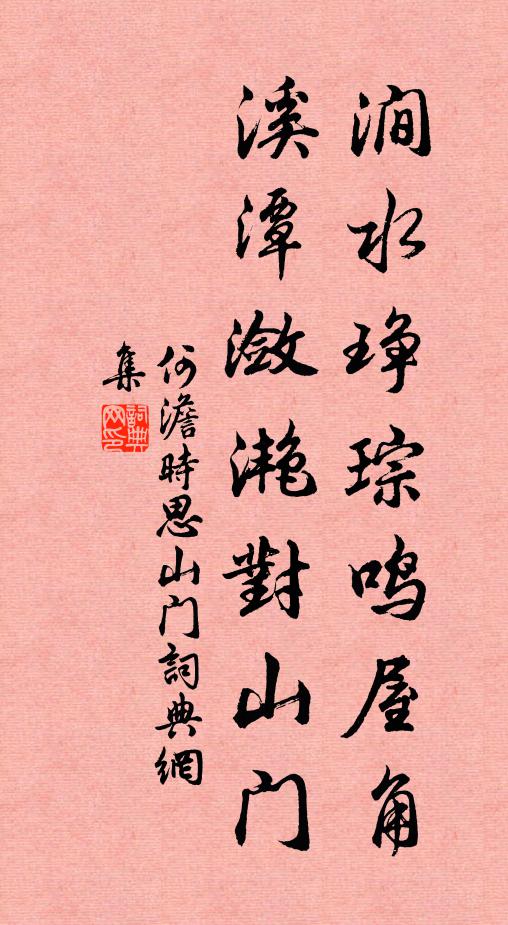 涧水琤琮鸣屋角
溪潭潋滟對山门
何澹時思山门詞典網
集
詞典網印